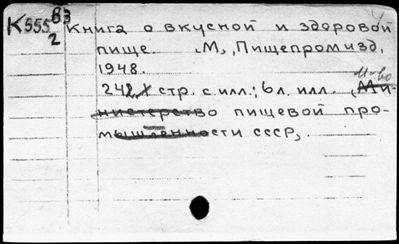 К 555 83/2 Книга о вкусной и здоровой
пище. М., Пищепромизд,
1948.
242 стр. с илл.; 6 л. илл. (М-во
Министерство пищевой про-
мышленности СССР).